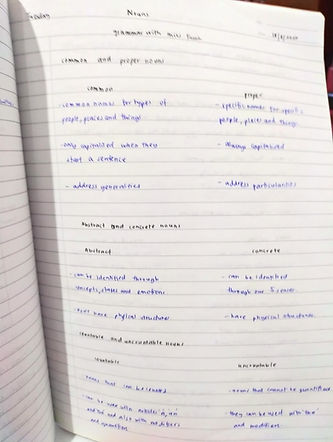 Nouns
grammar with miss
common and proper nouns
common
proper
- common names for types of
people, places and things
- specific names for specific
people, places and things
- only capitalized when they
start a sentence
- always capitalized
- address generalities
- address particularities
Abstract and concrete nouns
Abstract
concrete
- can be identified through
concepts, ideas and emotions
- can be identified
through our 5 senses
have physical structures
- have physical structures
countable and uncountable nouns
countable
uncountable
- nouns that can be
- nouns that cannot be quantified
- can be used with articles a, an
and the and also with modifiers
and quantifiers
- they can be used with 'the'
and modifiers